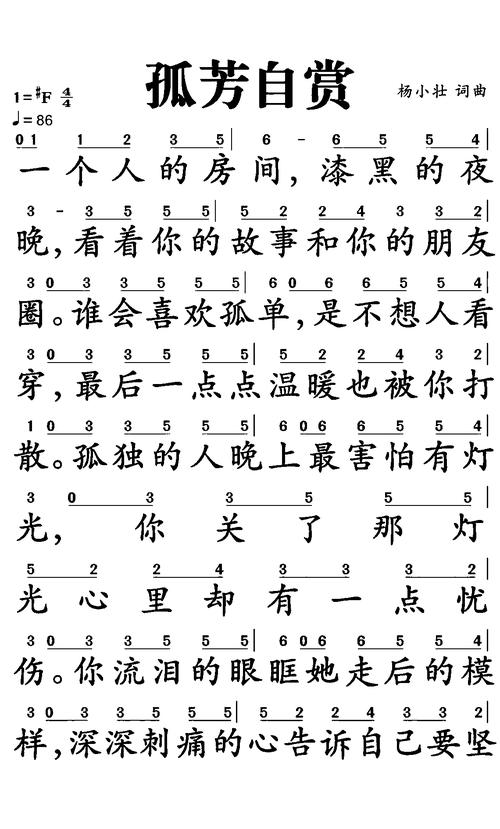 孤芳自赏
1=#F 4/4
杨小壮 词曲
♩=86
0 1 1 2 3 5 | 6 - 6 5 5 4 |
一个人的房间,漆黑的夜
3 - 3 5 5 5 | 5 2 2 4 3 3 2 |
晚,看着你的故事和你的朋友
3 0 3 3 5 5 5 | 6 0 6 6 5 5 4 |
圈。谁会喜欢孤单,是不想人看
3 0 3 3 5 5 5 | 5 2 2 4 3 2 |
穿,最后一点点温暖也被你打
1 0 3 3 5 5 5 | 6 0 6 6 5 5 4 |
散。孤独的人晚上最害怕有灯
3 0 3 3 5 5 |
光,你关了那灯
5 2 2 4 3 3 3 2 |
光心里却有一点忧
3 0 3 3 5 5 5 | 6 0 6 6 5 5 4 |
伤。你流泪的眼眶她走后的模
3 0 3 3 5 5 5 | 5 2 2 4 3 3 2 |
样,深深刺痛的心告诉自己要坚